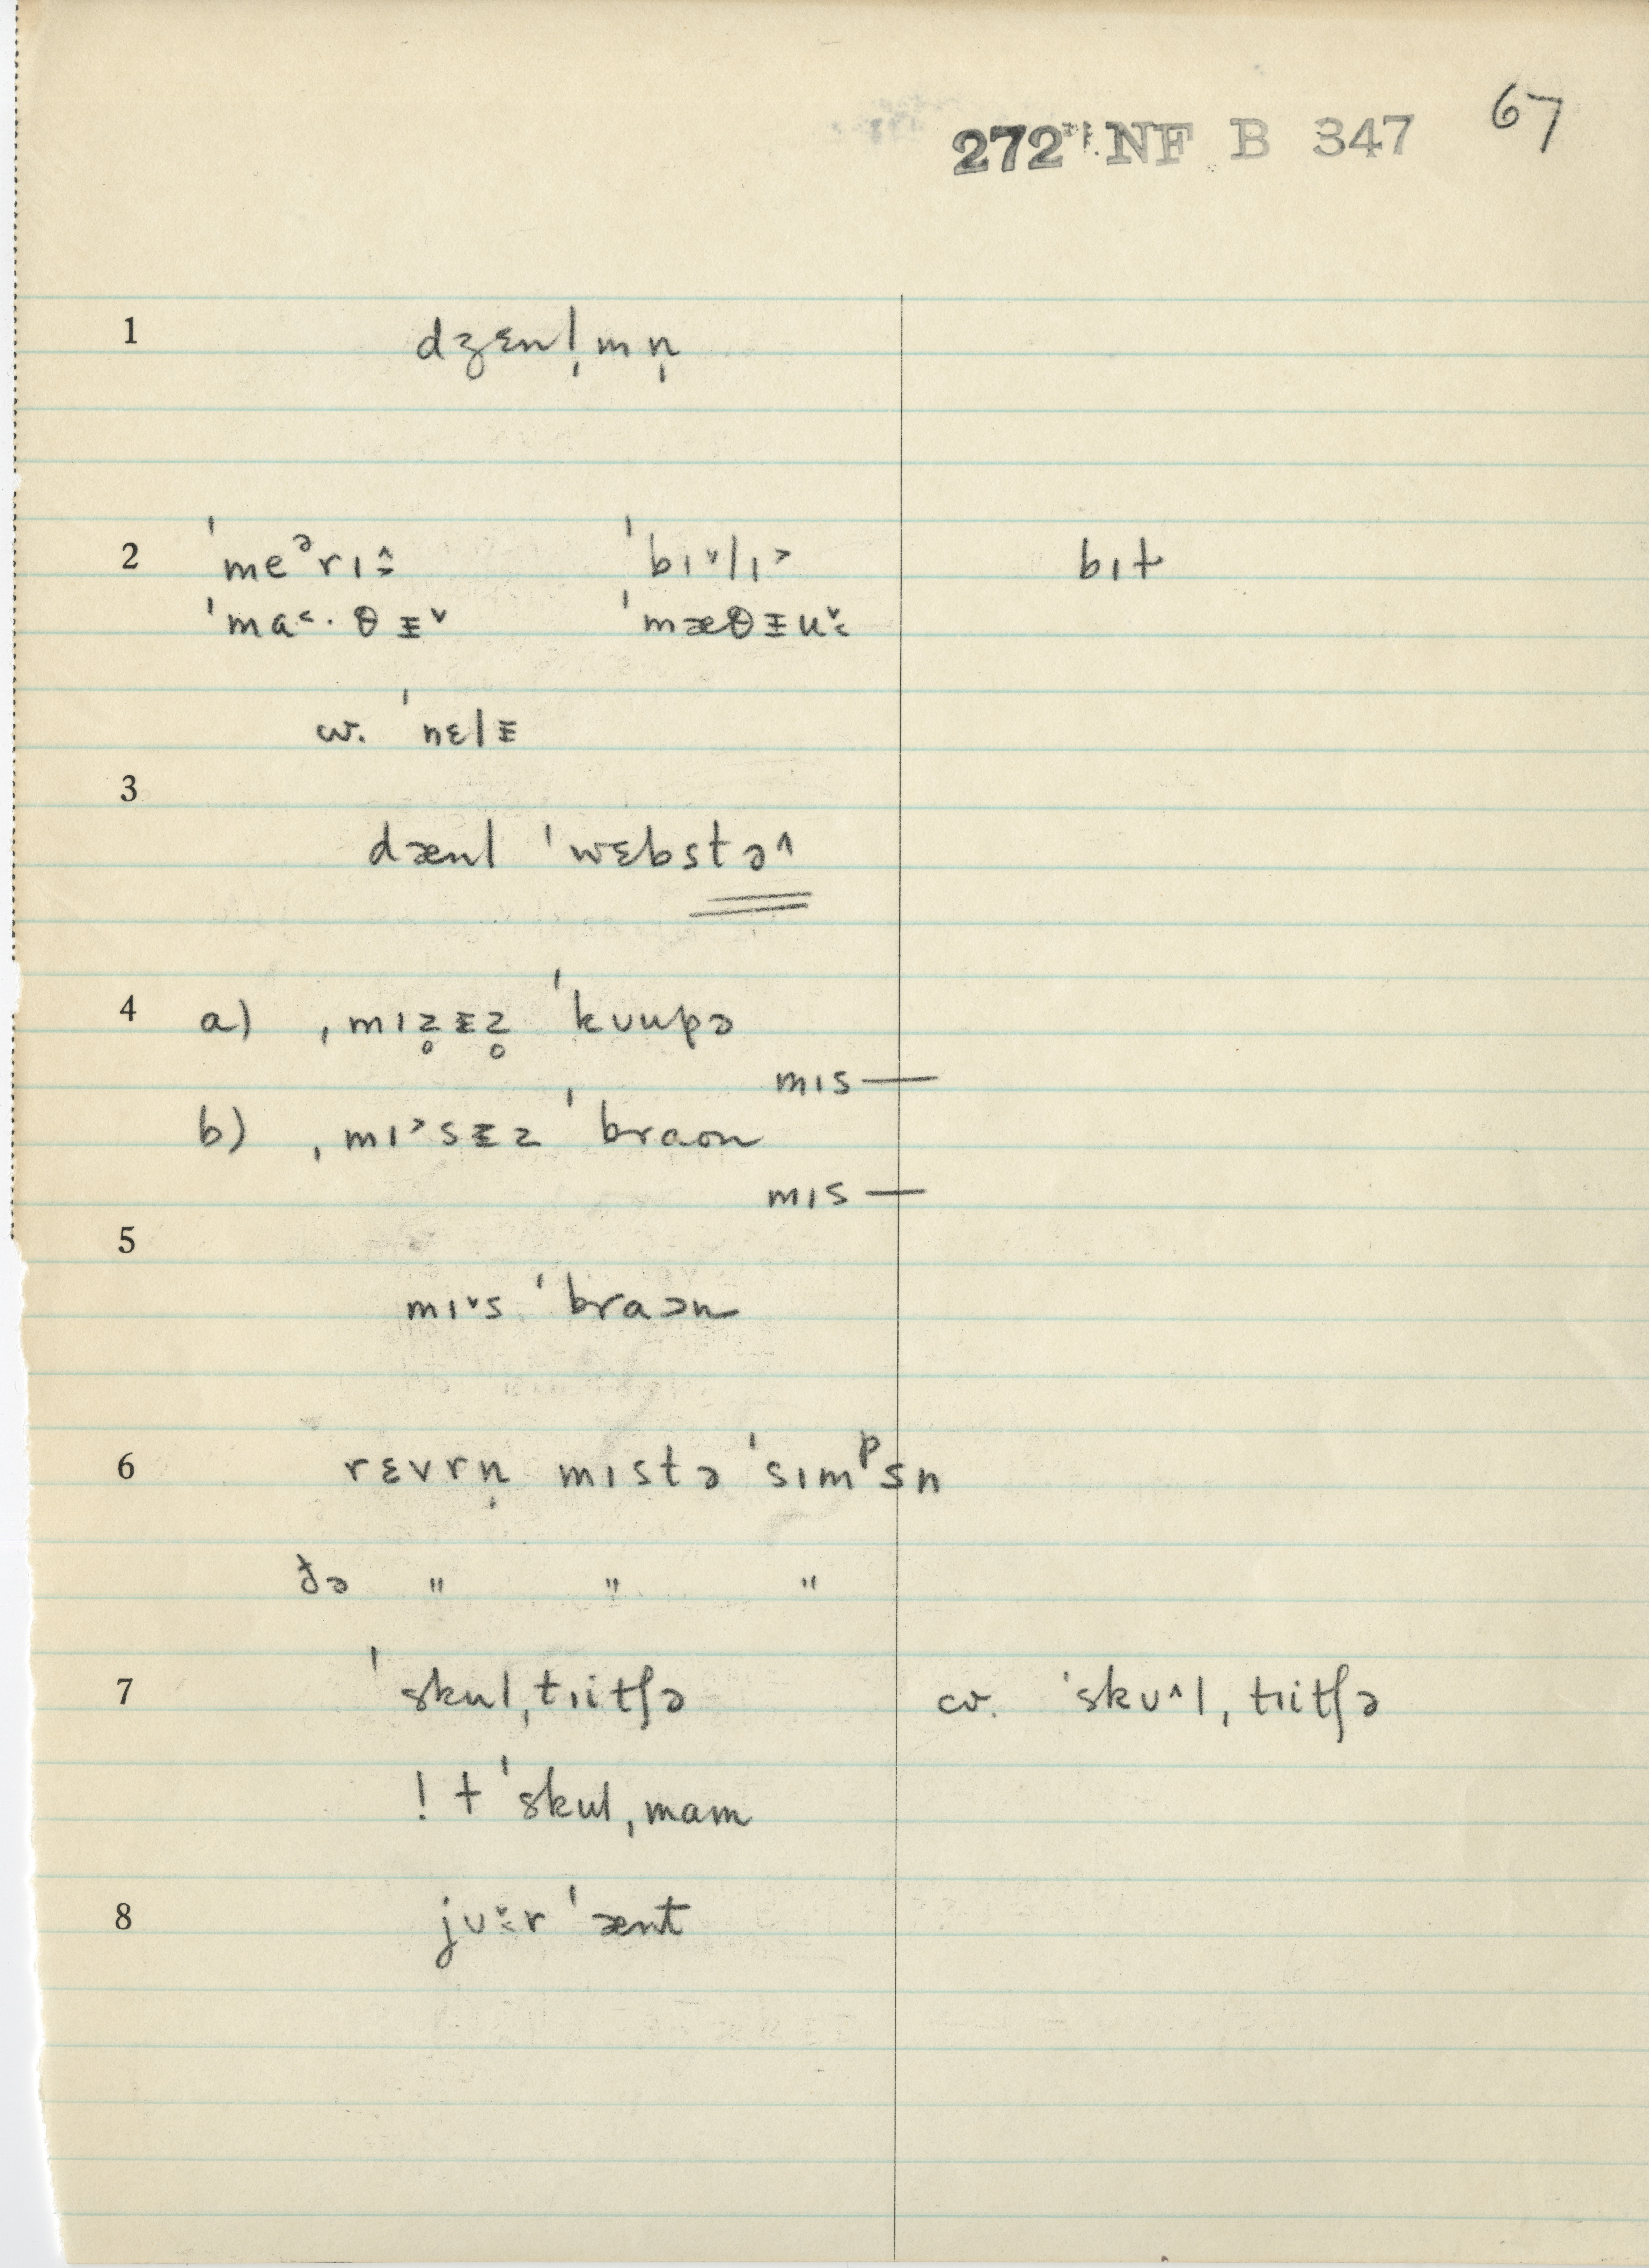 272 NF B 347 67
1 dʒɛnl̩mn̩
2 ˈmeᵊrɪ ˈbɪ˅lɪ˃ bɪt
ˈma˂·θɪ̵˅ ˈmæθɪ̵u
w. ˈnɛlɪ̵
3
dænl ˈwɛbstə^
4 a) ˌmɪz̥ɪ̵z̥ ˈkʊupə
mɪs—
b) ˌmɪ˃sɪ̵z ˈbraʊn
mɪs—
5
mɪ˅s ˈbraən
6 rɛvrn̩ mɪstə ˈsɪmᵖsn
ðə " " "
7 ˈskul,tɪitʃə cv. ˈskʊ^l,tɪitʃə
! † ˈskul,mam
8 jʊr ˈænt